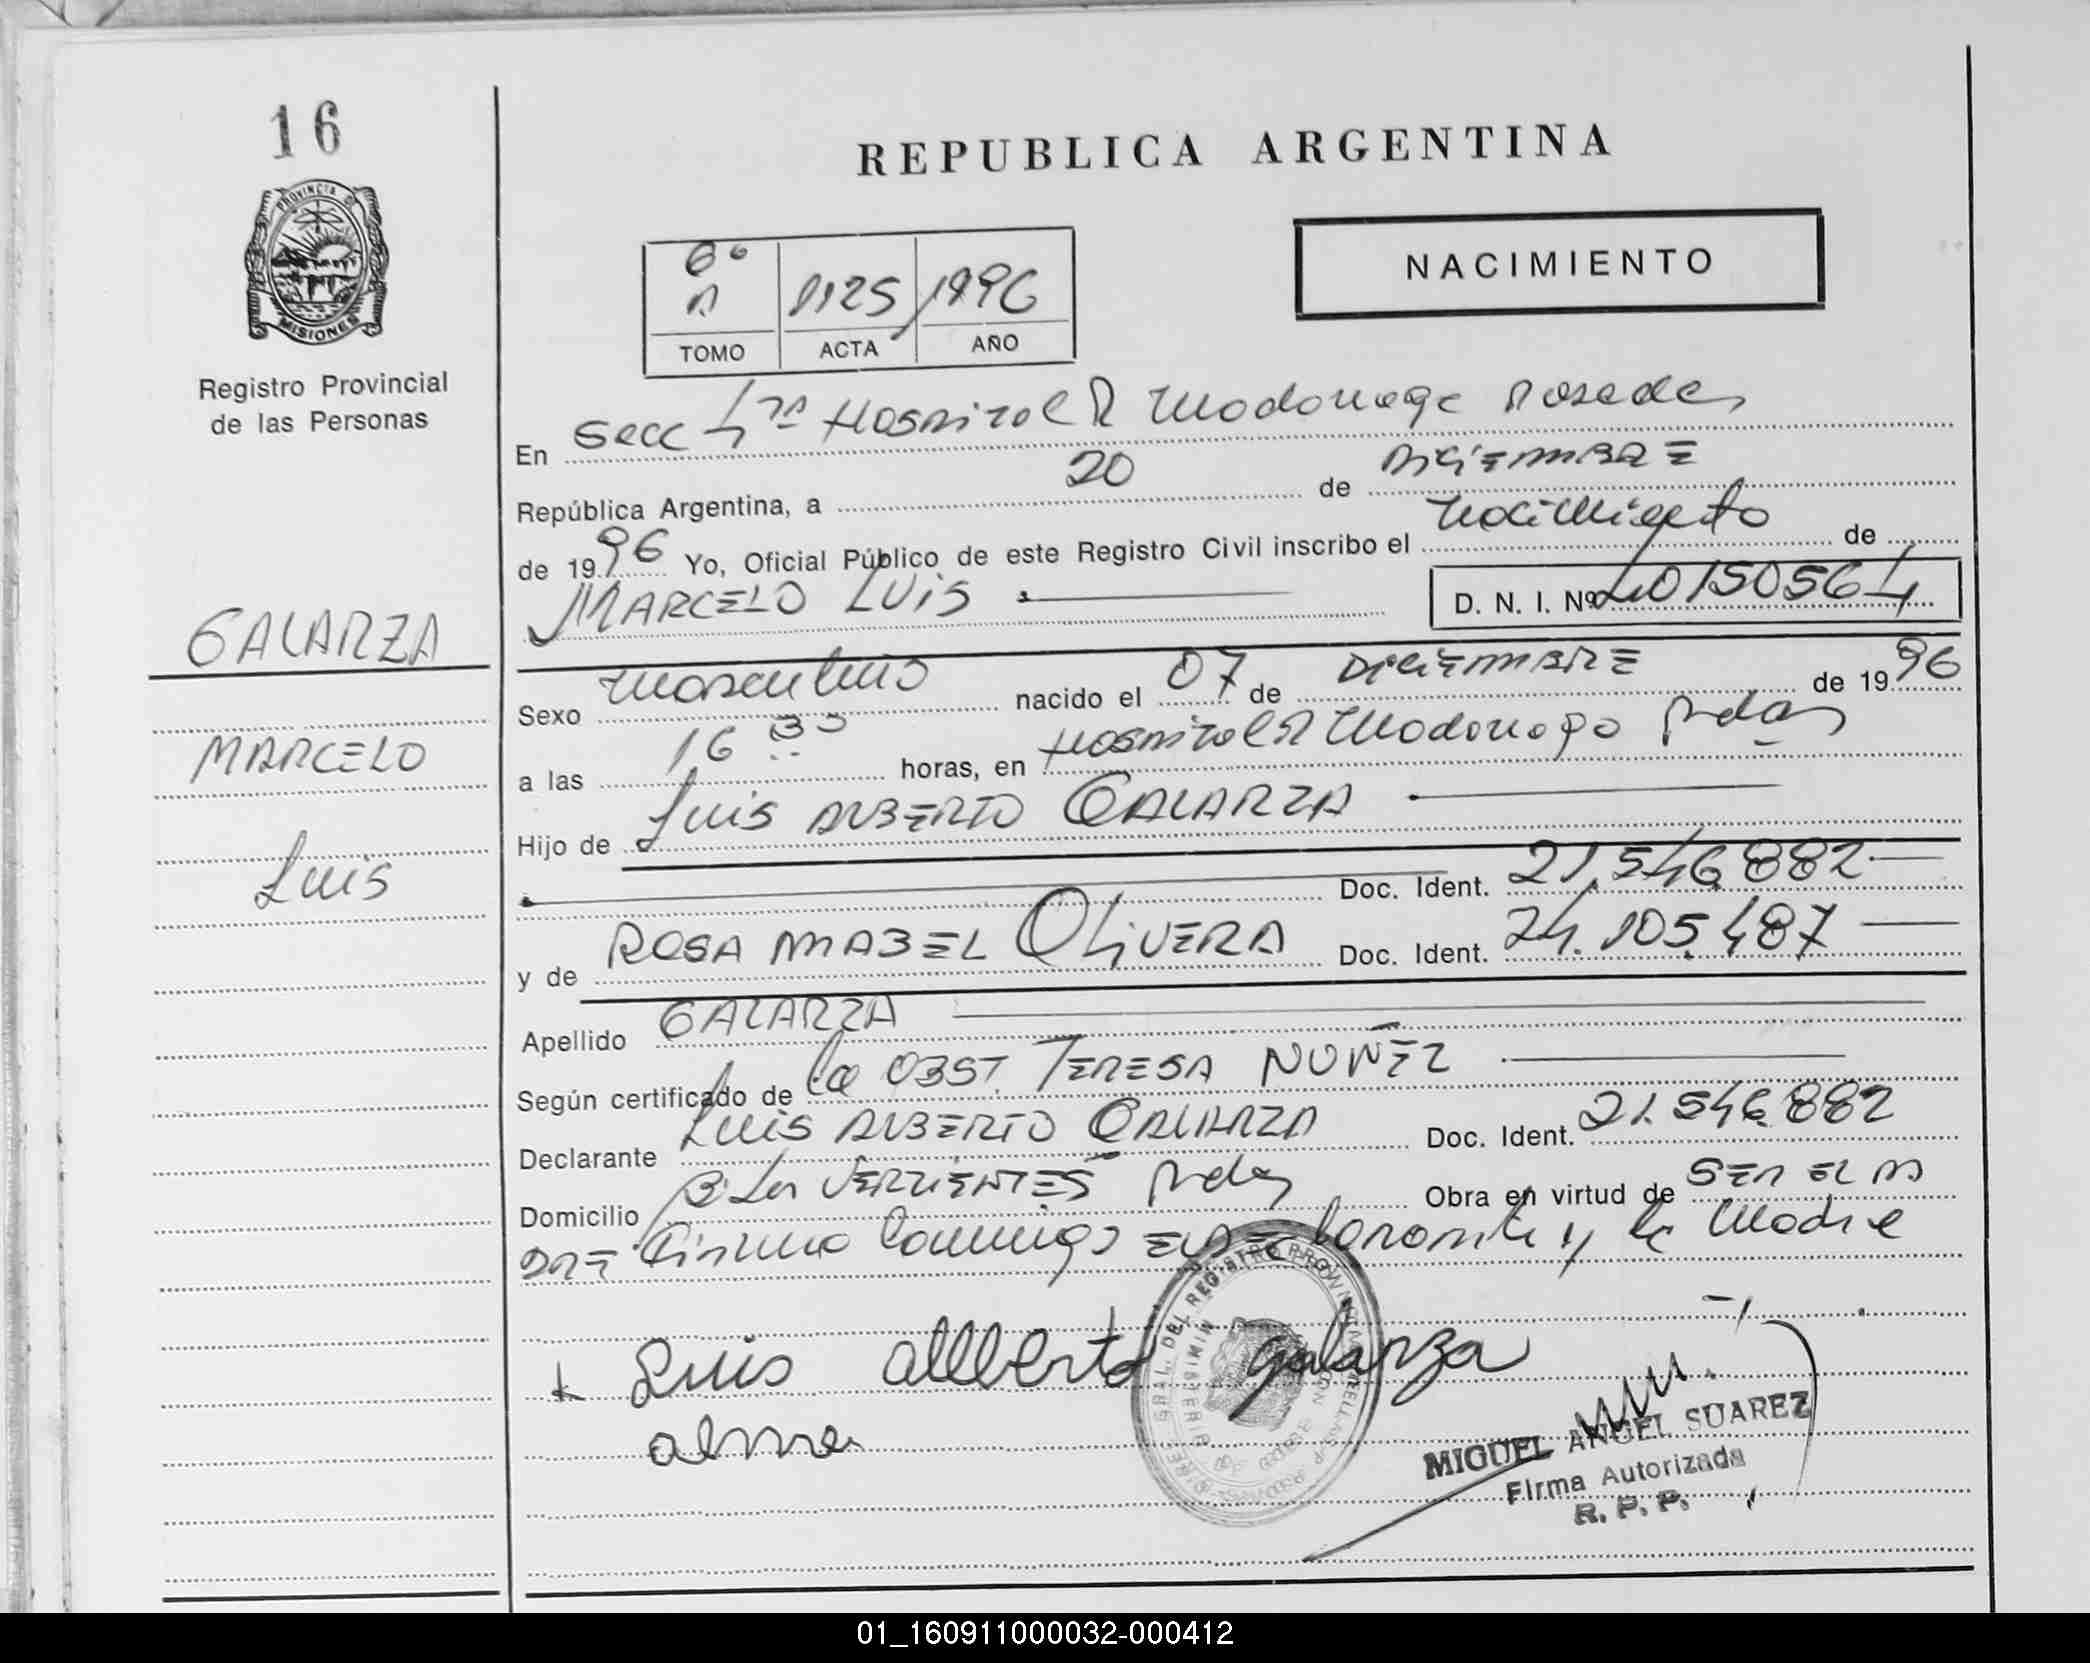 16
PROVINCIA DE
MISIONES
Registro Provincial
de las Personas
GALARZA
MARCELO
Luis
REPUBLICA ARGENTINA
NACIMIENTO
6º
A 1125 1996
TOMO ACTA AÑO
En Secc 4ta Hospital R Madariaga Posadas
República Argentina, a 20 de DICIEMBRE
de 1996 Yo, Oficial Público de este Registro Civil inscribo el Nacimiento de
MARCELO LUIS D. N. I. Nº 40150564
Sexo masculino nacido el 07 de DICIEMBRE de 1996
a las 16 30 horas, en Hospital R Madariaga Pdas
Hijo de Luis ALBERTO GALARZA
Doc. Ident. 21.546.882
y de ROSA MABEL OLIVERA Doc. Ident. 24.105.487
Apellido GALARZA
Según certificado de la OBST. TERESA NUÑEZ
Declarante Luis ALBERTO GALARZA Doc. Ident. 21.546.882
Domicilio Bº Las VERTIENTES Pdas Obra en virtud de SER EL PA
DRE Firma conmigo EL DECLARANTE y la Madre
Luis allberto galarza
MIGUEL ANGEL SUAREZ
Firma Autorizada
R. P. P.
01_160911000032-000412